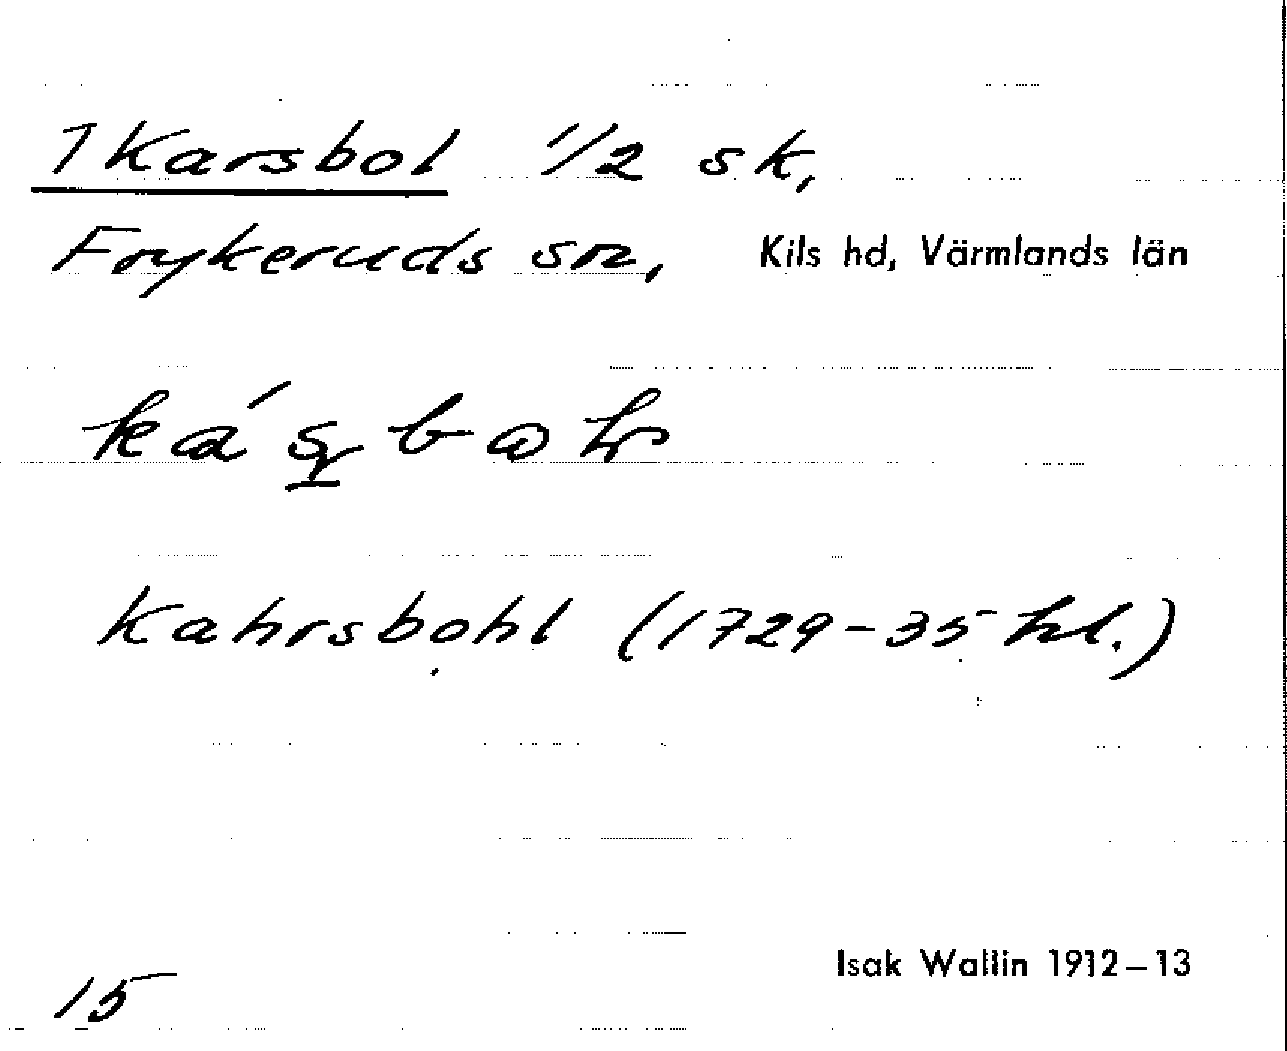 1 Karsbol 1/2 sk,
Frykeruds sn, Kils hd, Värmlands län
Kahrsbohl (1729-35 hl.)
Isak Wallin 1912–13
15